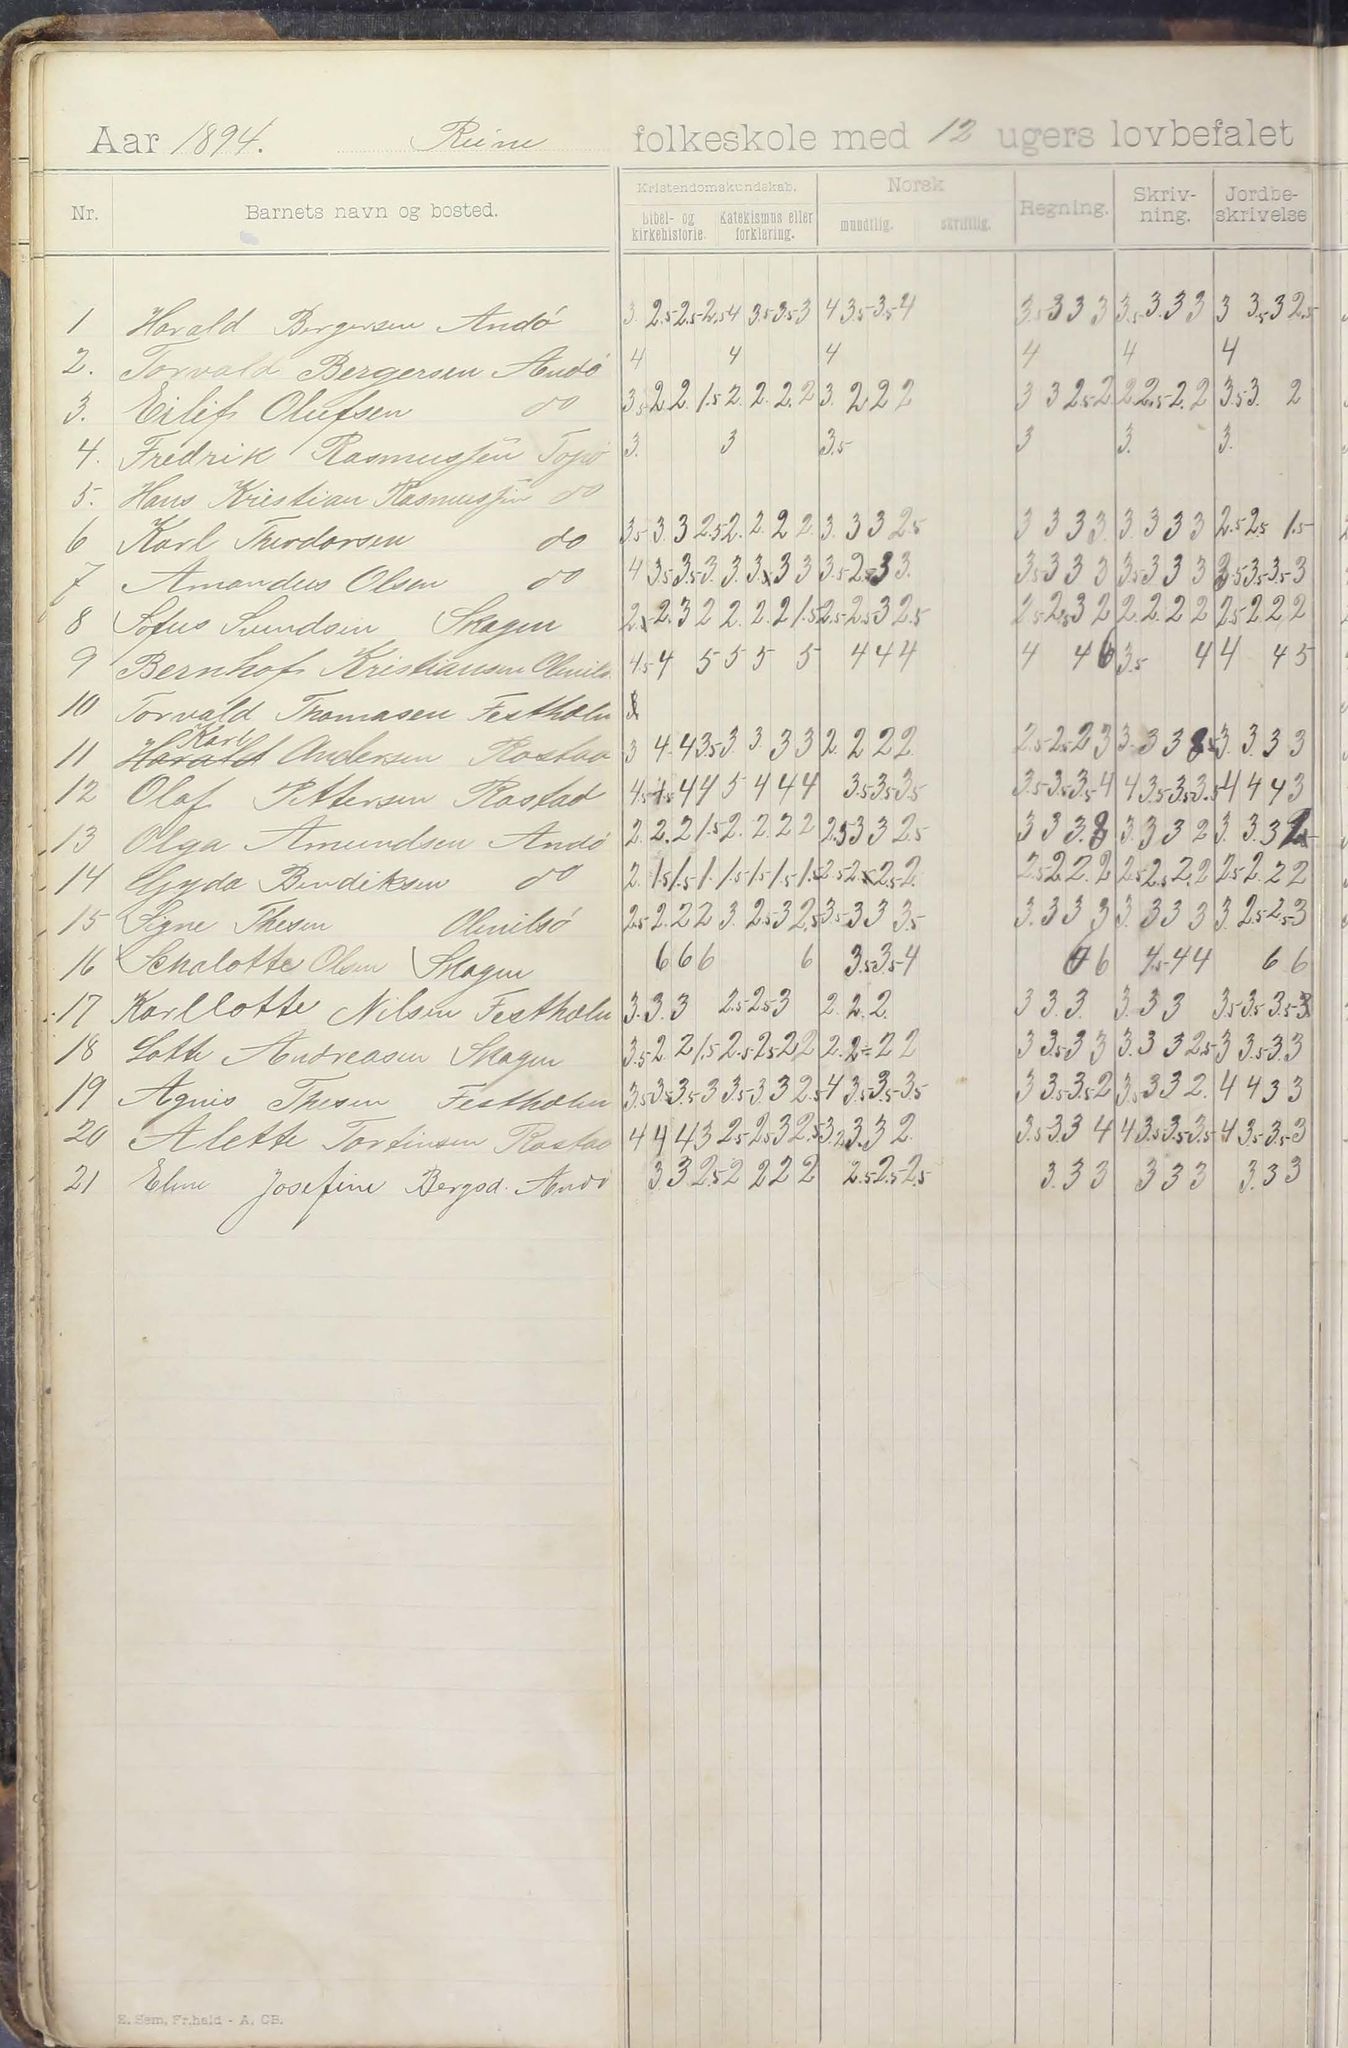 Aar 1894. Reine folkeskole med 12 ugers lovbefalet
Nr. Barnets navn og bosted. Kristendomskundskab. Norsk Regning. Skriv- Jordbe-
bibel- og katekismus eller mundtlig. skriftlig. ning. skrivelse
kirkehistorie. forklaring.
1 Harald Bergersen Andö 3. 2.5 2.5 2.5 4 3.5 3.5 3 4 3.5 3.5 4 3.5 3 3 3 3.5 3. 3 3 3 3.5 3 2.5
2. Torvald Bergersen Andö 4 4 4 4 4 4
3. Eilif Olufsen do 3.5 2 2. 1.5 2. 2. 2. 2 3. 2 2 2 3 3 2.5 2 2 2.5 2. 2 3.5 3. 2
4. Fredrik Rasmussen 3. 3 3.5 3 3. 3.
5. Hans Kristian Rasmussen do
6 Karl do 3.5 3. 3 2.5 2. 2. 2 2. 3. 3 3 2.5 3 3 3 3. 3. 3 3 3 2.5 2.5 1.5
7 Amandus Olsen do 4 3.5 3.5 3. 3. 3. 3 3 3.5 2.5 3 3. 3.5 3 3 3 3.5 3 3 3 3.5 3.5 3.5 3
8 Sofus Svendsen Skagen 2. 2. 3 2 2. 2. 2 1.5 2.5 2.5 3 2.5 2.5 2.5 3 2 2. 2. 2 2 2.5 2. 2 2
9 Bernhof Kristiansen 4.5 4 5 5 5 5 4 4 4 4 4 6 3.5 4 4 4 5
10 Torvald Thomasen Festhælen
11 Harald Karl Andersen Rostad 3 4. 4 3.5 3 3. 3 3 2. 2 2 2. 2.5 2.5 2 3 3. 3 3 3. 3. 3 3
12 Olaf Pettersen Rostad 4.5 4.5 4 4 5 4 4 4 3.5 3.5 3.5 3.5 3.5 3.5 4 4 3.5 3.5 3.5 4 4 4 3
13 Olga Amundsen Andö 2. 2. 2 1.5 2. 2. 2 2 2.5 3 3 2.5 3 3 3. 3 3. 3 3 2 3. 3. 3
14 Gyda Bendiksen do 2. 1.5 1.5 1. 1.5 1.5 1.5 1.5 2.5 2.5 2.5 2. 2.5 2 2. 2 2.5 2.5 2. 2 2.5 2. 2 2
15 Signe Thesen 2.5 2. 2 2 3. 2.5 3 2.5 3.5 3 3 3.5 3. 3 3 3 3. 3 3 3 3. 2.5 2.5 3
16 Schalotte Olsen Skagen 6 6 6 6 3.5 3.5 4 6 6 4.5 4 4 6 6
17 Karllotte Nilsen Festhælen 3. 3. 3 2.5 2.5 3 2. 2. 2. 3 3. 3. 3. 3 3 3.5 3.5 3.5 3
18 Lotte Andreasen Skagen 3.5 2. 2 1.5 2.5 2.5 2 2 2. 2 2 2 3 3.5 3 3 3. 3 3 2.5 3 3.5 3. 3
19 Agnes Thesen Festhælen 3.5 3.5 3.5 3 3.5 3. 3 2.5 4 3.5 3.5 3.5 3 3.5 3.5 2 3.5 3 3 2. 4 4 3 3
20 Alette Rostad 4 4 4 3 2.5 2.5 3 2.5 3. 3. 3 2. 3.5 3. 3 4 4 3.5 3.5 3.5 4 3.5 3.5 3
21 Josefine Bergsd. Andö 3. 3 2.5 2 2 2 2 2.5 2.5 2.5 3. 3 3 3 3 3 3. 3 3
E. Sem, Fr.hald - A. CB.